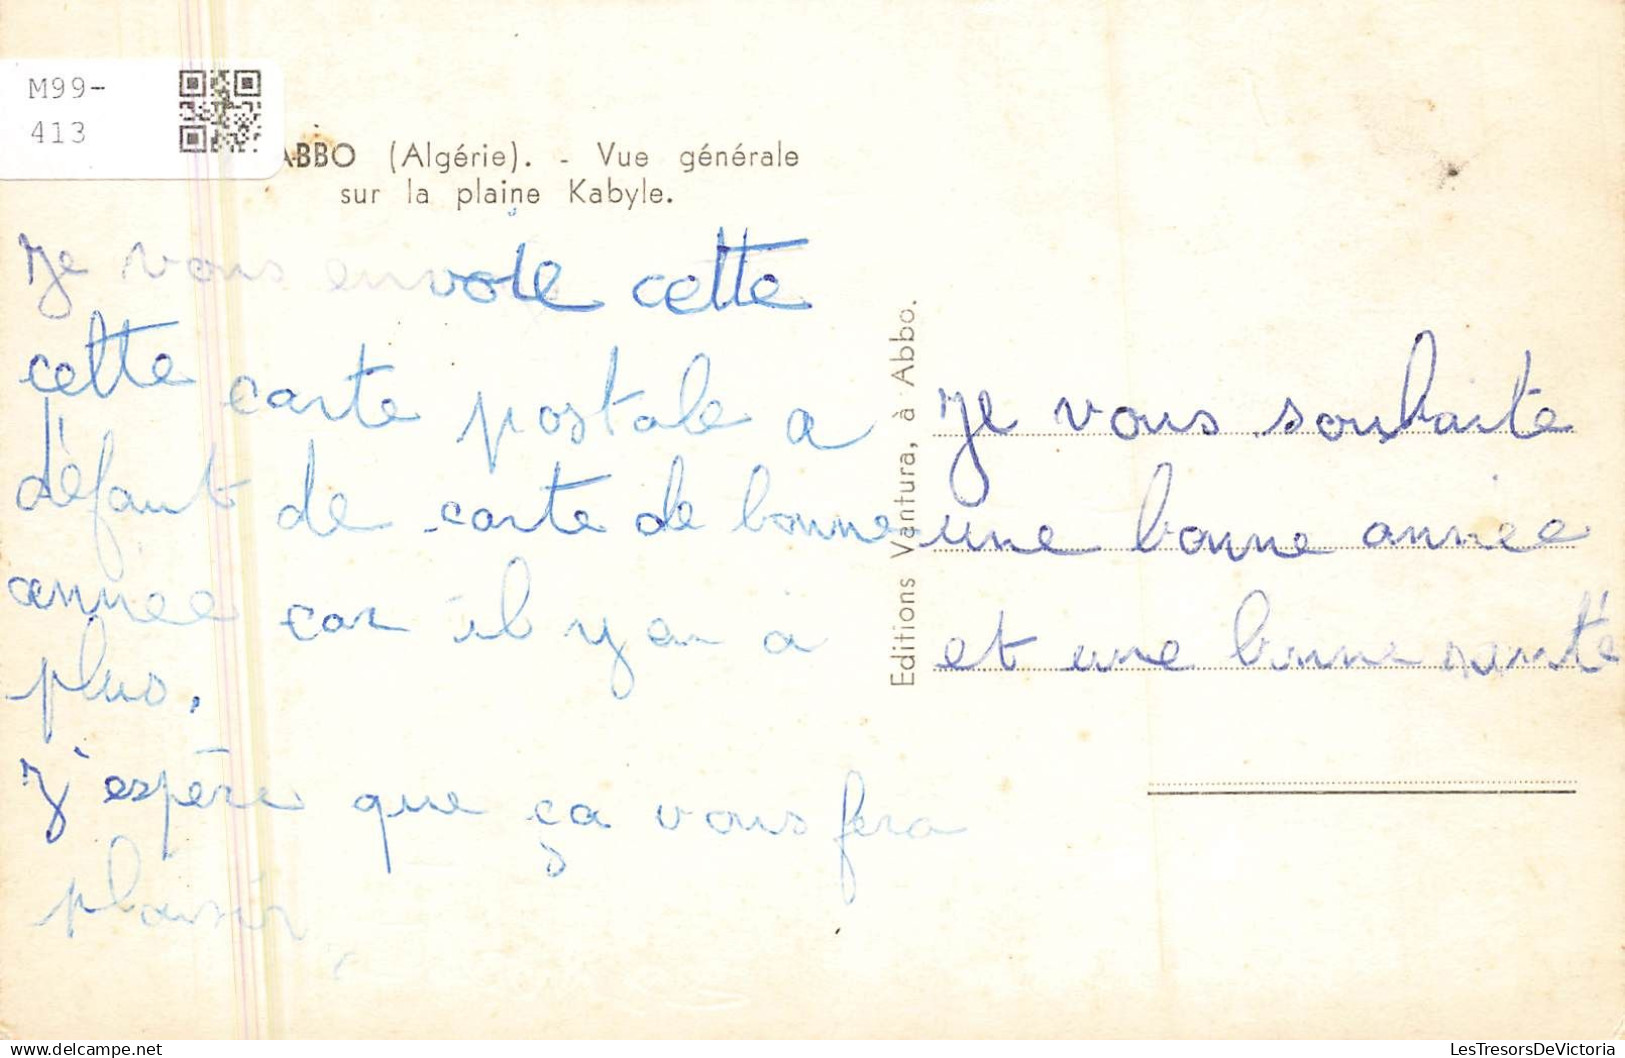 M99-
413
ABBO (Algérie). - Vue générale
sur la plaine Kabyle.
Je vous envoie cette
cette carte postale a
défaut de carte de bonne
année car il y en a
plus.
J'espère que ça vous fera
plaisir.
Editions Vantura, à Abbo.
Je vous souhaite
une bonne année
et une bonne santé
www.delcampe.net
LesTresorsDeVictoria